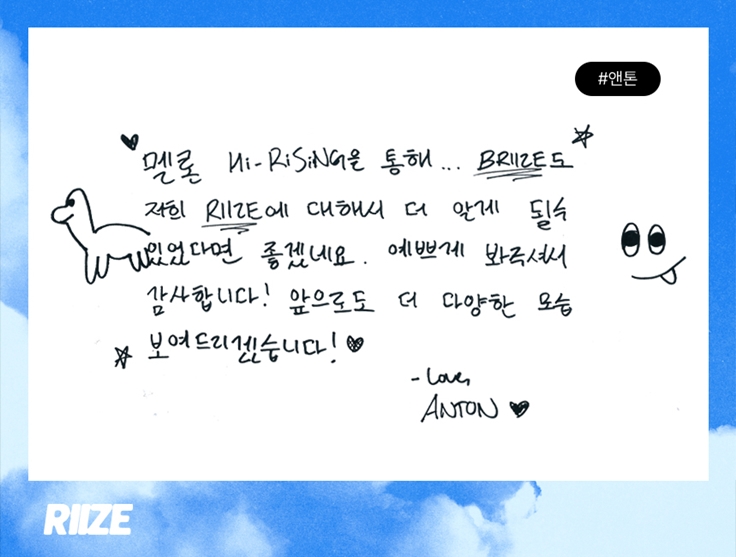 #앤톤
멜론 Hi-RiSiNG을 통해... BRIIZE도
저희 RIIZE에 대해서 더 알게 될수
있었다면 좋겠네요. 예쁘게 봐주셔서
감사합니다! 앞으로도 더 다양한 모습
보여드리겠습니다!
-Love,
ANTON
RIIZE